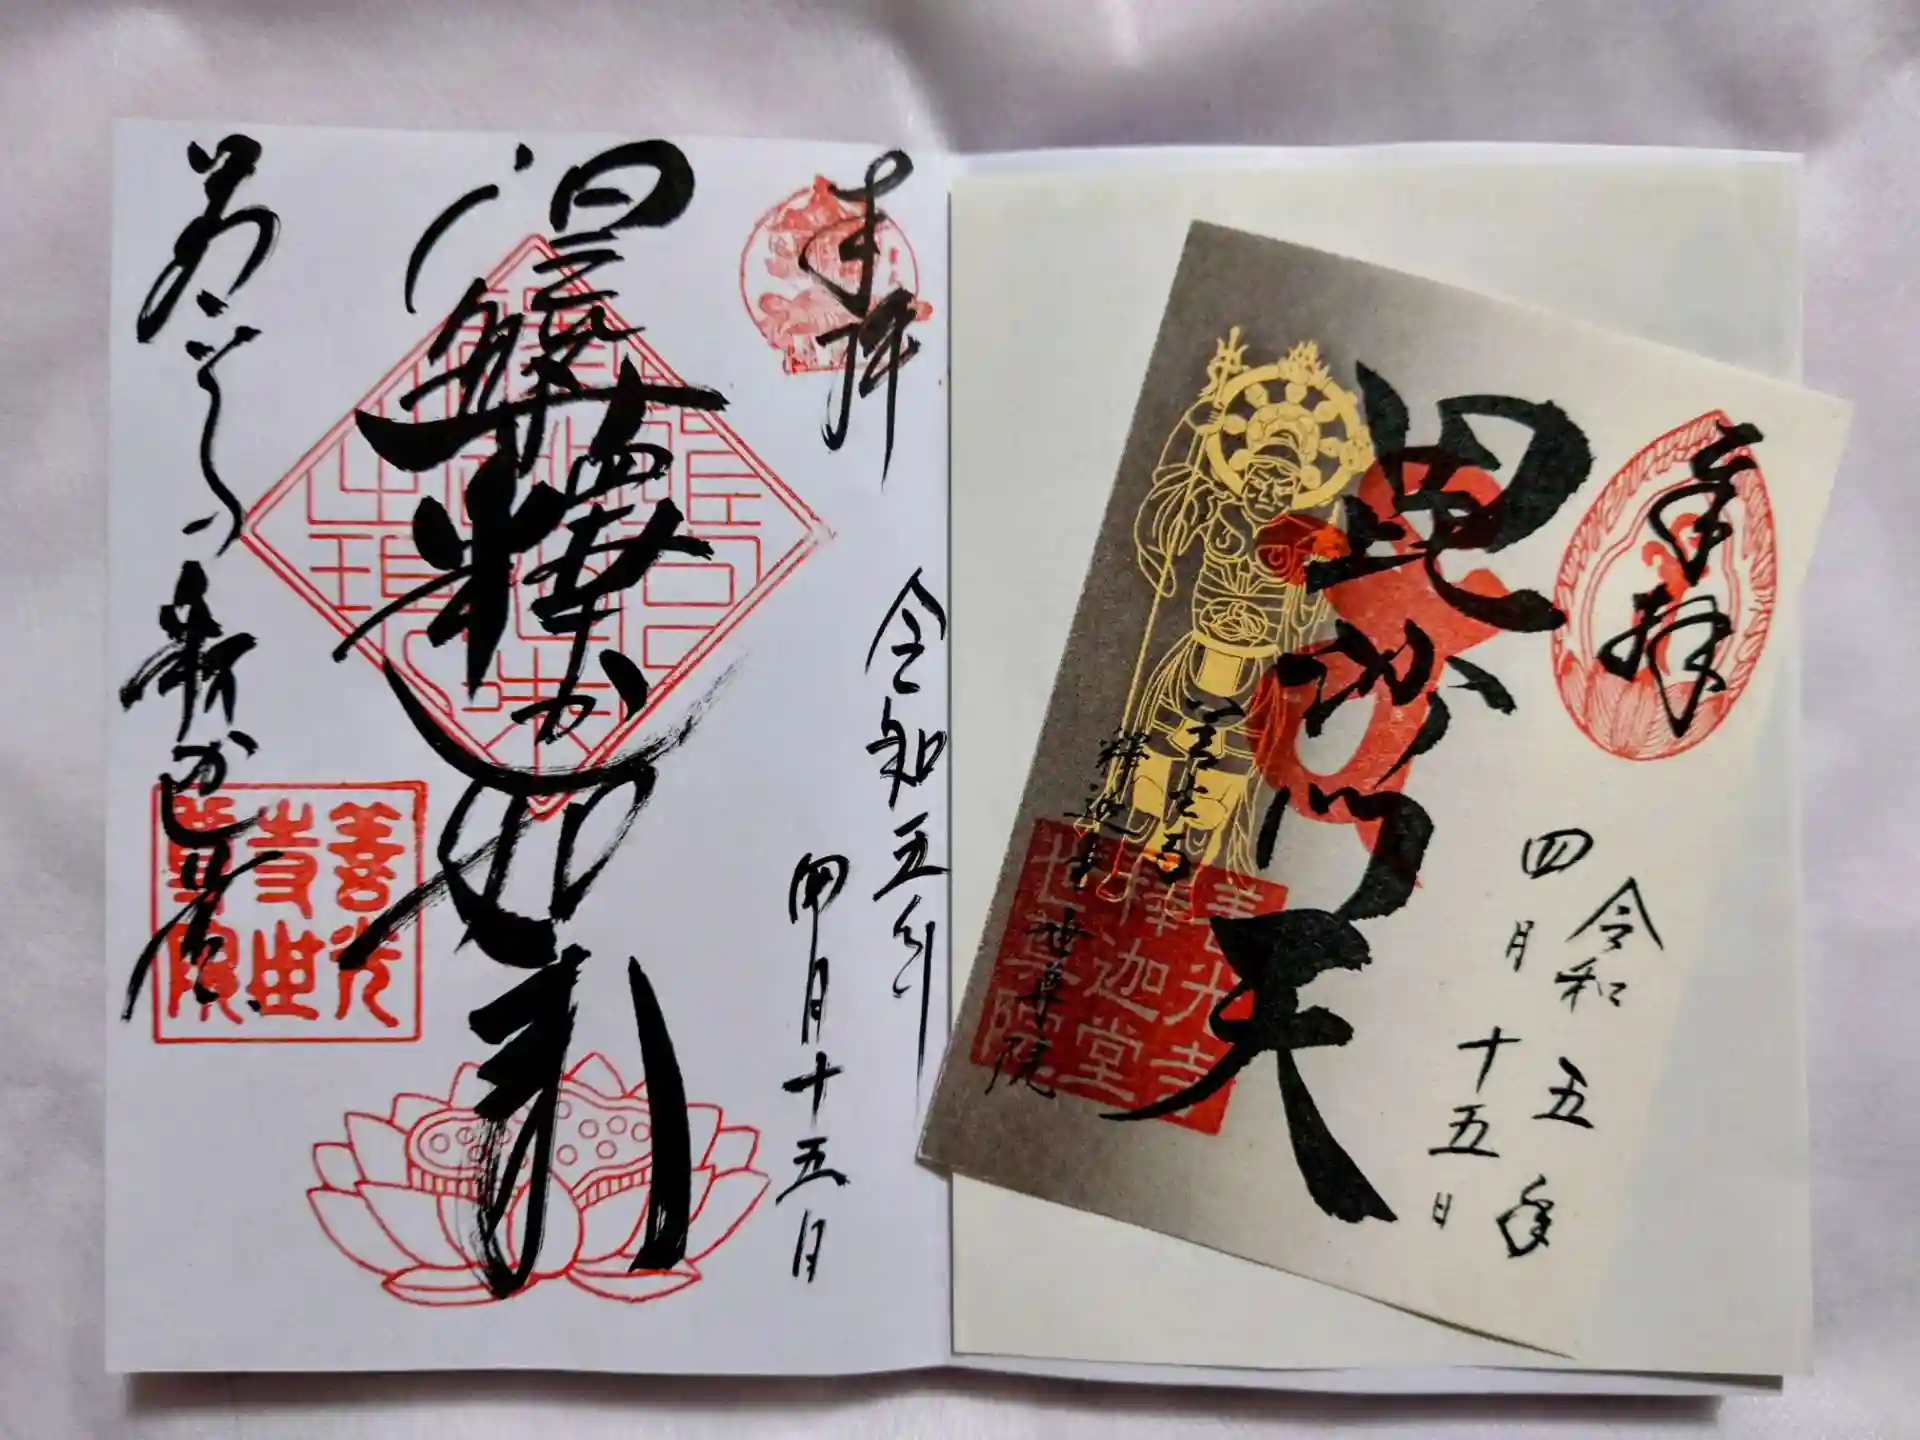 奉拝
令和五年
四月十五日
毘沙門天
善光寺
釋迦堂 世尊院
善光寺
釋迦堂
世尊院
奉拝
令和五年
四月十五日
涅槃釋迦如来
善光寺 釋迦堂
善光
寺世
尊院